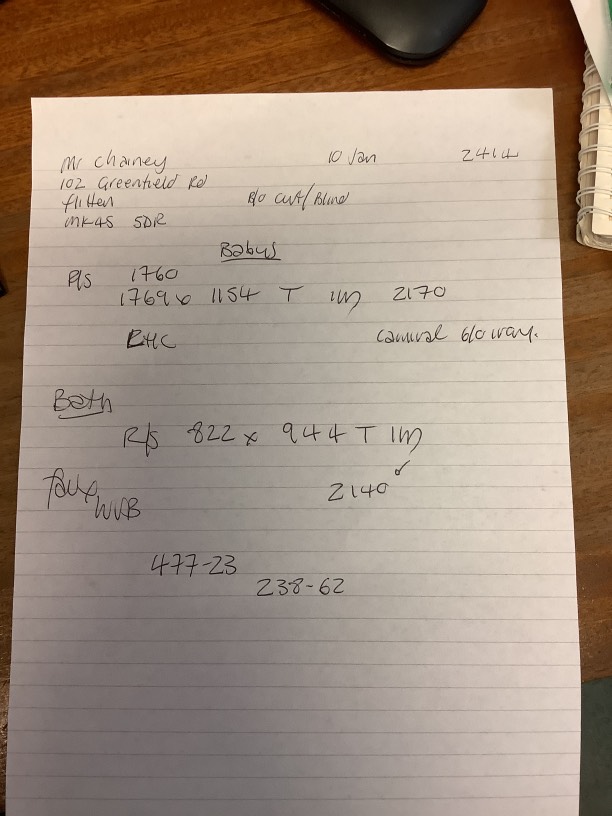 Mr Chainey 10 Jan 2414
102 Greenfield Rd
flitten
B/O Curt/Blind
MK45 5DR
Babys
R/S 1760
1769 x 1154 T IM 2170
RHC Carnival 6/0 way.
Bath
R/S 822 x 944 T IM
Faux WVB 2140
477-23
238-62